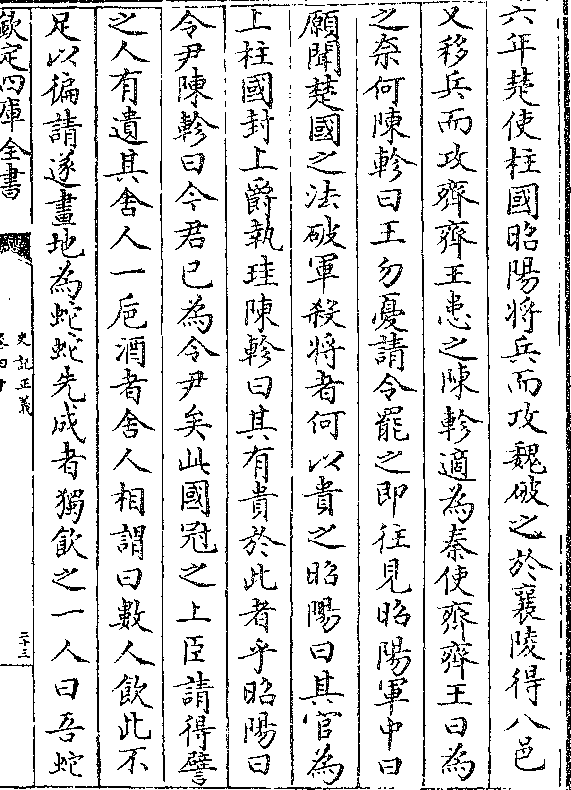 六年楚使柱國昭陽將兵而攻魏破之於襄陵得八邑
又移兵而攻齊齊王患之陳軫適為秦使齊齊王曰為
之奈何陳軫曰王勿憂請令罷之即往見昭陽軍中曰
願聞楚國之法破軍殺將者何以貴之昭陽曰其官為
上柱國封上爵執珪陳軫曰其有貴於此者乎昭陽曰
令尹陳軫曰今君已為令尹矣此國冠之上臣請得譬
之人有遺其舍人一巵酒者舍人相謂曰數人飲此不
足以徧請遂畫地為蛇蛇先成者獨飲之一人曰吾蛇
欽定四庫全書
史記正義
二十三